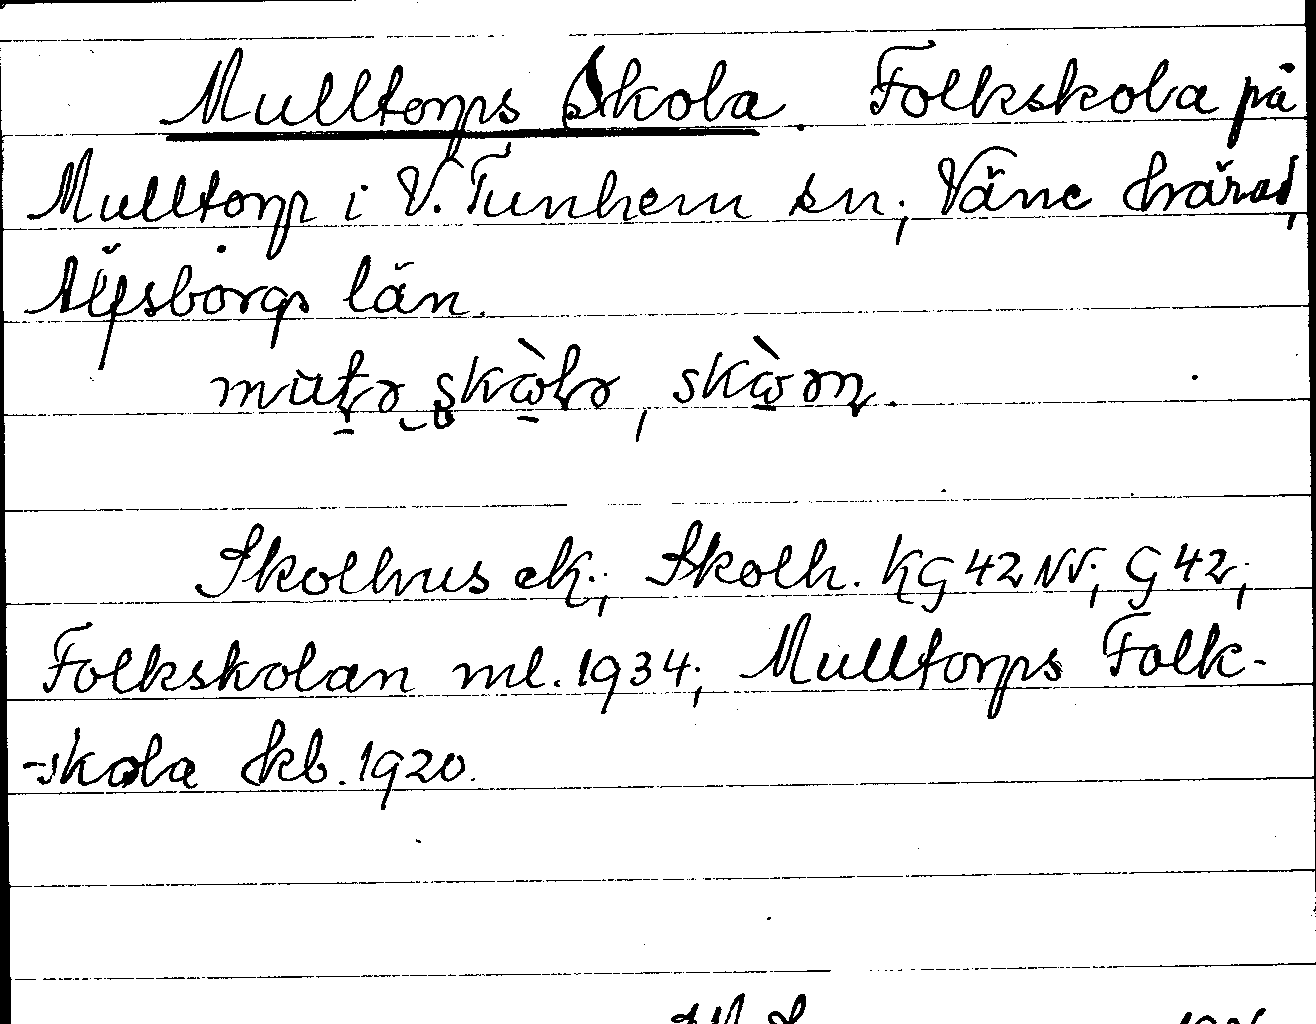 Mulltorps Skola. Folkskola på
Mulltorp i V. Tunhem sn, Väne härad,
Älfsborgs län.
Skolhus ek.; Skolh. KG 42 NV; G 42;
Folkskolan ml. 1934; Mulltorps Folk-
-skola Skb. 1920.